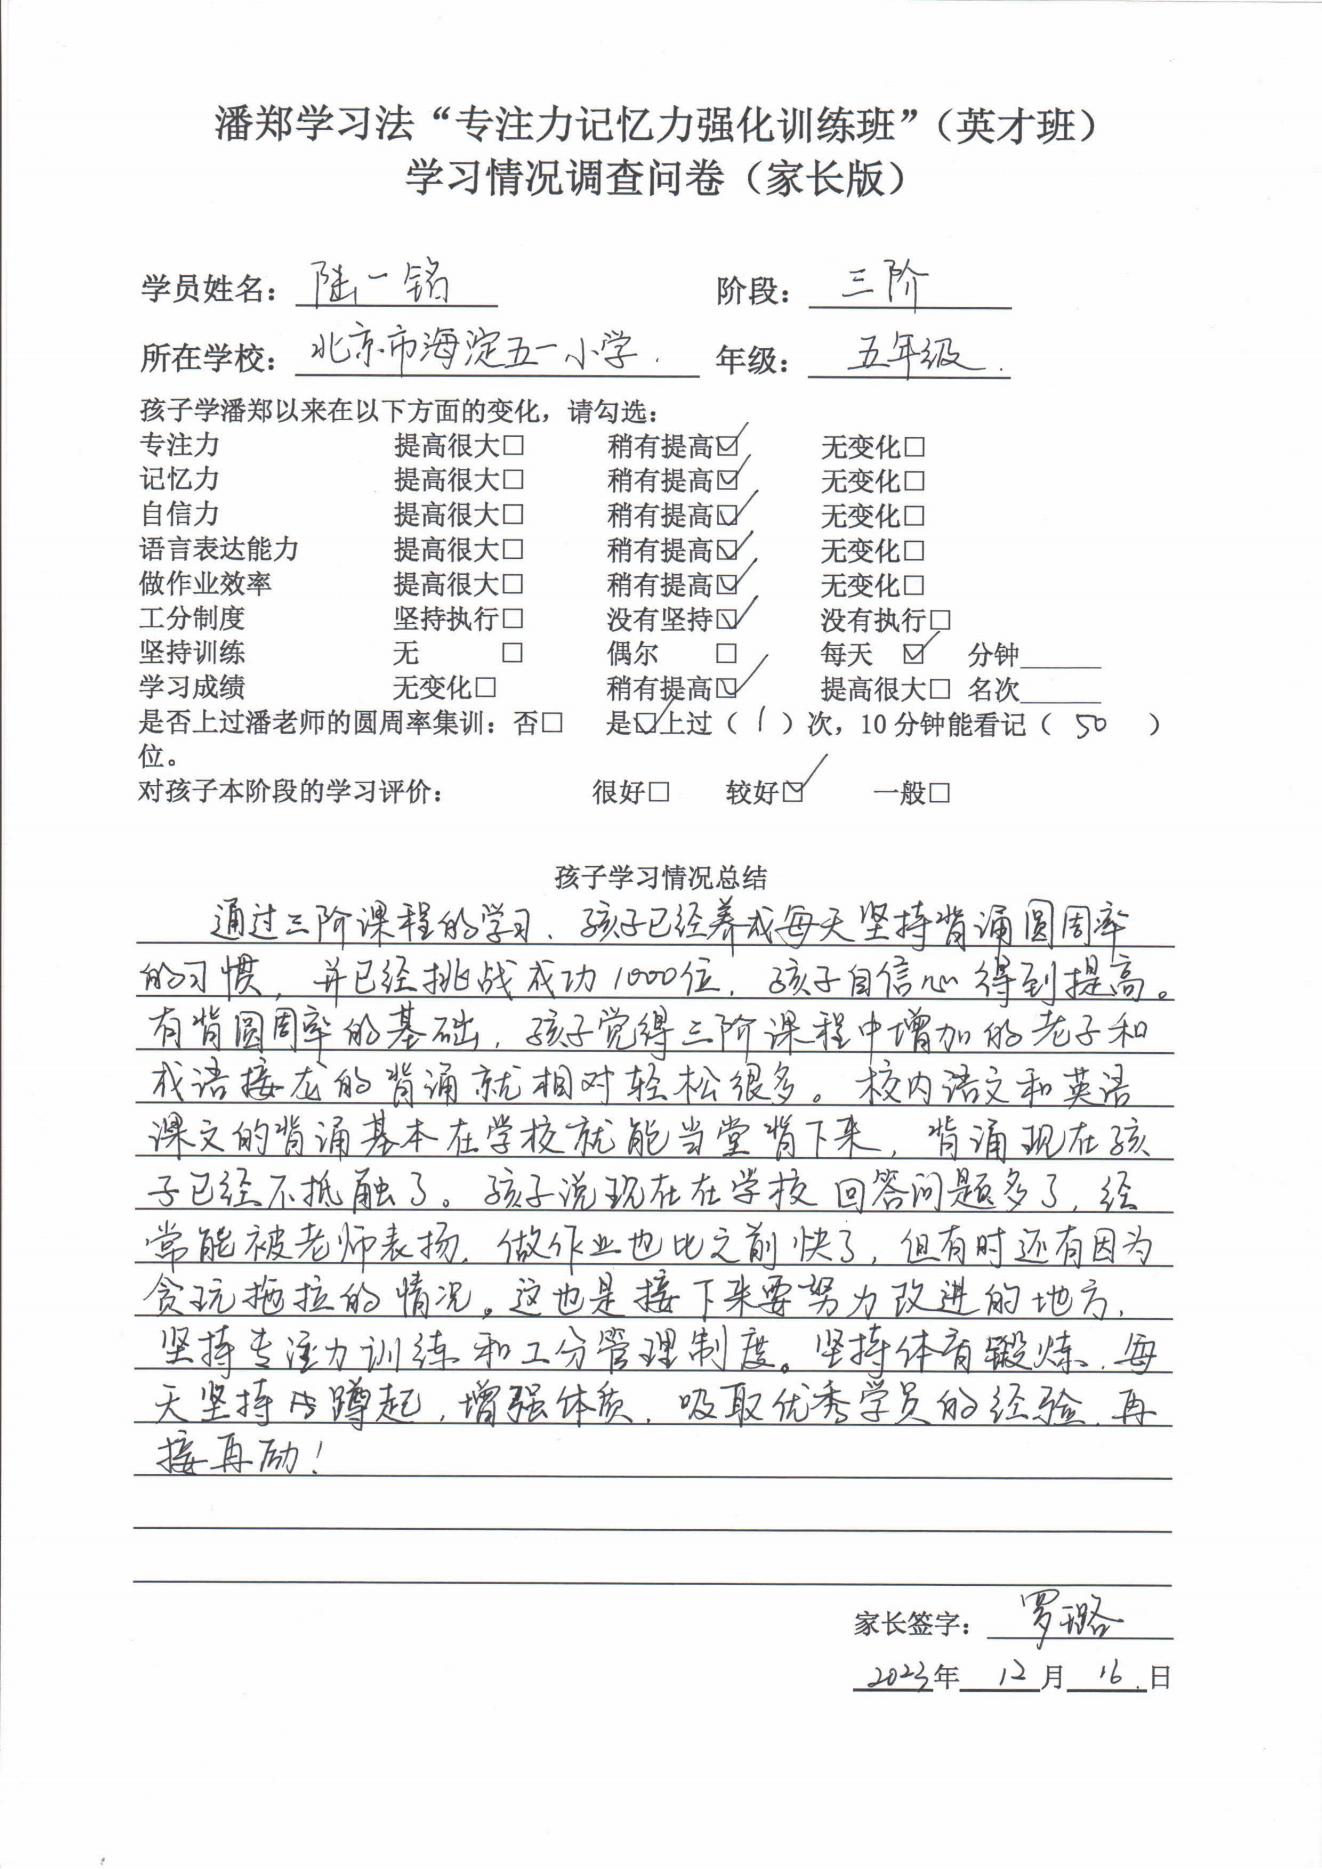 潘郑学习法“专注力记忆力强化训练班”（英才班）
学习情况调查问卷（家长版）
学员姓名：陆一铭 阶段：三阶
所在学校：北京市海淀五一小学. 年级：五年级.
孩子学潘郑以来在以下方面的变化，请勾选：
专注力 提高很大□ 稍有提高☑ 无变化□
记忆力 提高很大□ 稍有提高☑ 无变化□
自信力 提高很大□ 稍有提高☑ 无变化□
语言表达能力 提高很大□ 稍有提高☑ 无变化□
做作业效率 提高很大□ 稍有提高☑ 无变化□
工分制度 坚持执行□ 没有坚持☑ 没有执行□
坚持训练 无 □ 偶尔 □ 每天 ☑ 分钟______
学习成绩 无变化□ 稍有提高☑ 提高很大□ 名次______
是否上过潘老师的圆周率集训：否□ 是☑上过（1）次，10分钟能看记（50）
位。
对孩子本阶段的学习评价： 很好□ 较好☑ 一般□
孩子学习情况总结
通过三阶课程的学习，孩子已经养成每天坚持背诵圆周率
的习惯，并已经挑战成功1000位，孩子自信心得到提高。
有背圆周率的基础，孩子觉得三阶课程中增加的老子和
成语接龙的背诵就相对轻松很多。校内语文和英语
课文的背诵基本在学校就能当堂背下来，背诵现在孩
子已经不抵触了。孩子说现在在学校回答问题多了，经
常能被老师表扬，做作业也比之前快了，但有时还有因为
贪玩拖拉的情况。这也是接下来要努力改进的地方，
坚持专注力训练和工分管理制度。坚持体育锻炼，每
天坚持蹲起，增强体质，吸取优秀学员的经验，再
接再励！
家长签字：罗璐
2023年12月16.日